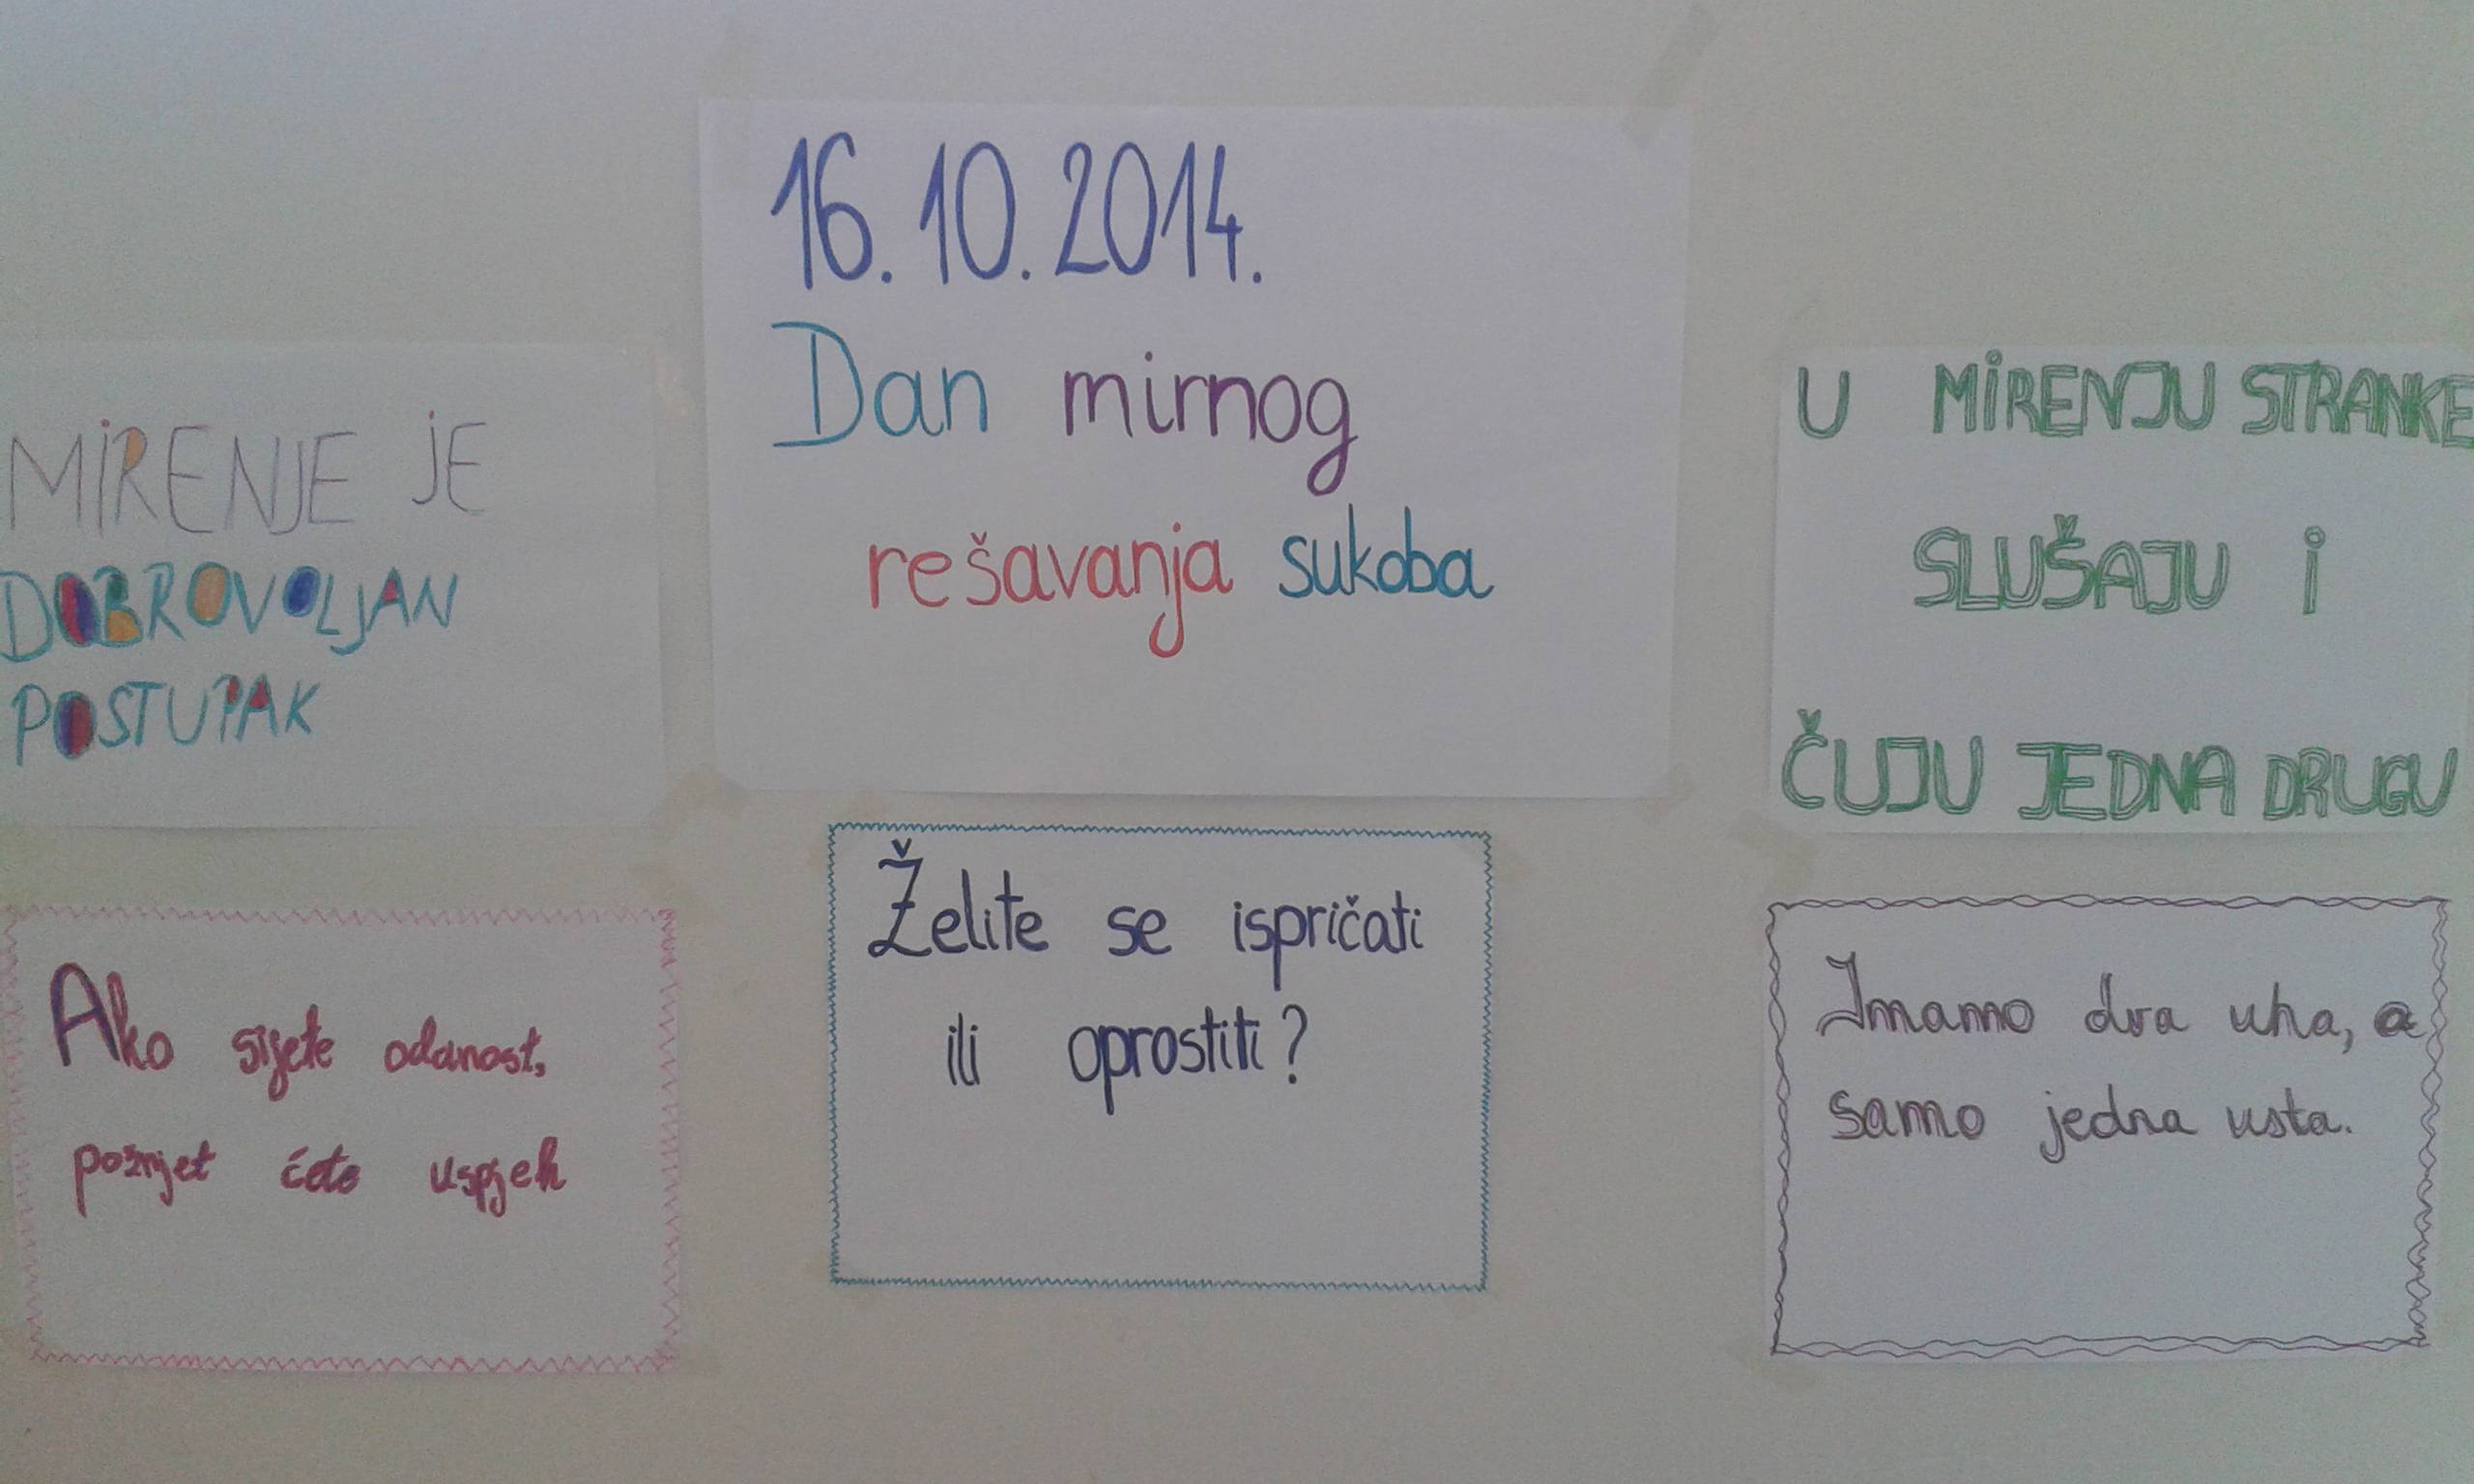 16.10.2014.
Dan mirnog
rešavanja sukoba
MIRENJE JE
DOBROVOLJAN
POSTUPAK
U MIRENJU STRANKE
SLUŠAJU I
ČUJU JEDNA DRUGU
Ako sijete odanost,
požnjet ćete uspjeh
Želite se ispričati
ili oprostiti?
Imamo dva uha, a
samo jedna usta.